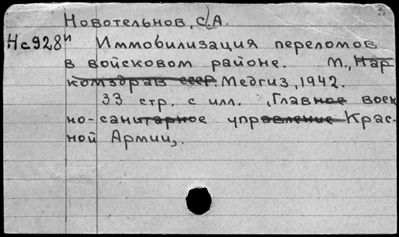 Новотельнов, С.А.
Нс928и Иммобилизация переломов
в войсковом районе. М., Нар
комздрав ссср. Медгиз, 1942.
33 стр. с илл. (Главное воен
но-санитарное управление Крас-
ной Армии).